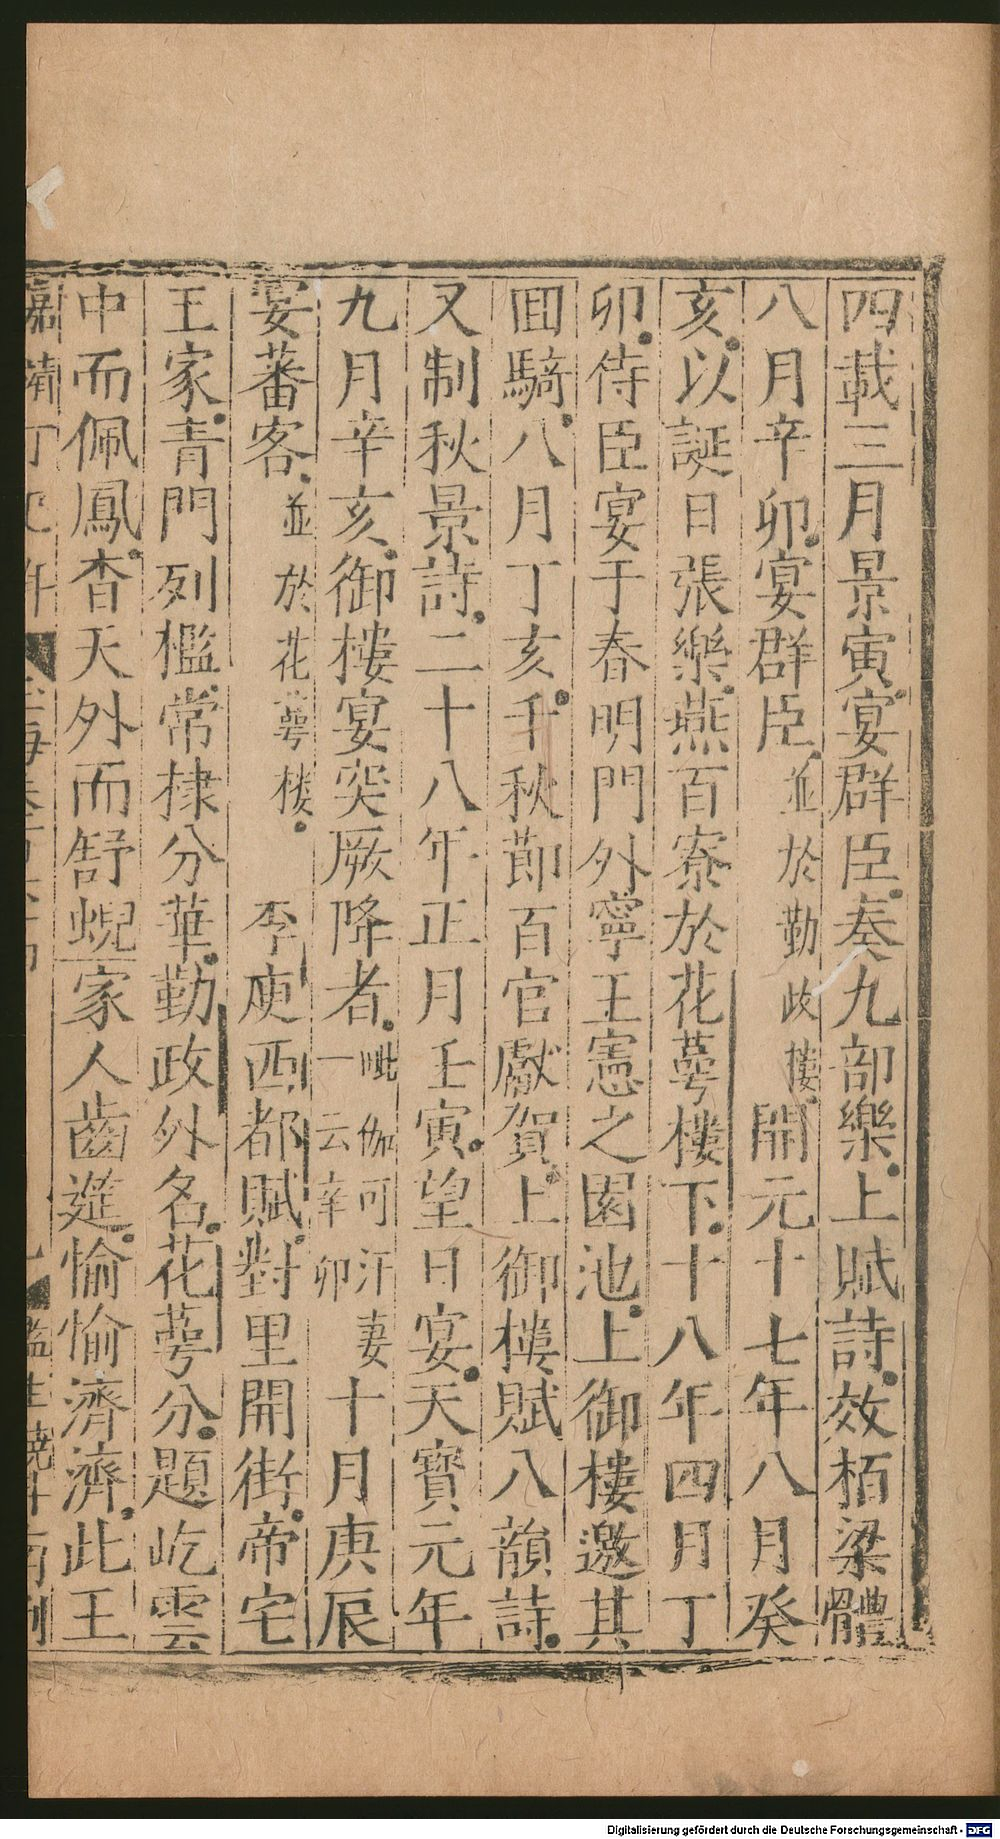 四載三月景寅宴群臣奏九部樂上賦詩效栢梁體
八月辛卯宴群臣並於勤政樓開元十七年八月癸
亥以誕日張樂燕百寮於花萼樓下十八年四月丁
卯侍臣宴于春明門外寧王憲之園池上御樓邀其
回騎八月丁亥千秋節百官獻賀上御樓賦八韻詩
又制秋景詩二十八年正月壬寅望日宴天寶元年
九月辛亥御樓宴突厥降者毗伽可汗妻一云辛卯十月庚辰
宴蕃客並於花萼樓 李庾西都賦對里開街帝宅
王家青門列檻常棣分華勤政外名花萼分題屹雲
中而佩鳳杳天外而舒蜺家人齒筵愉愉濟濟此王
嘉靖丁巳年 監生 南刊
Digitalisierung gefördert durch die Deutsche Forschungsgemeinschaft - DFG